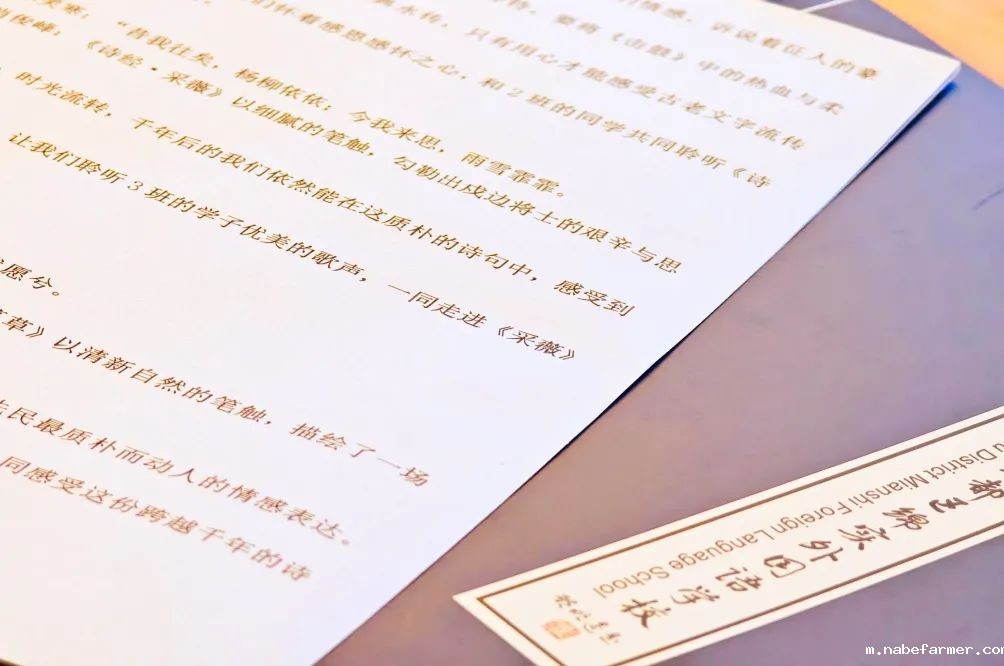 情感，诉说着征人的
要将《击鼓》中的热血与柔
只有用心才能感受古老文字流传
们怀着感恩感怀之心，和2班的同学共同聆听《诗
“昔我往矣，杨柳依依；今我来思，雨雪霏霏。
《诗经·采薇》以细腻的笔触，勾勒出戍边将士的艰辛与思
时光流转，千年后的我们依然能在这质朴的诗句中，感受到
让我们聆听3班的学子优美的歌声，一同走进《采薇》
愿兮。
草》以清新自然的笔触，描绘了一场
民最质朴而动人的情感表达。
同感受这份跨越千年的诗
都区绵实外国语学校
District Mianshi Foreign Language School
m.nabefarmer.com